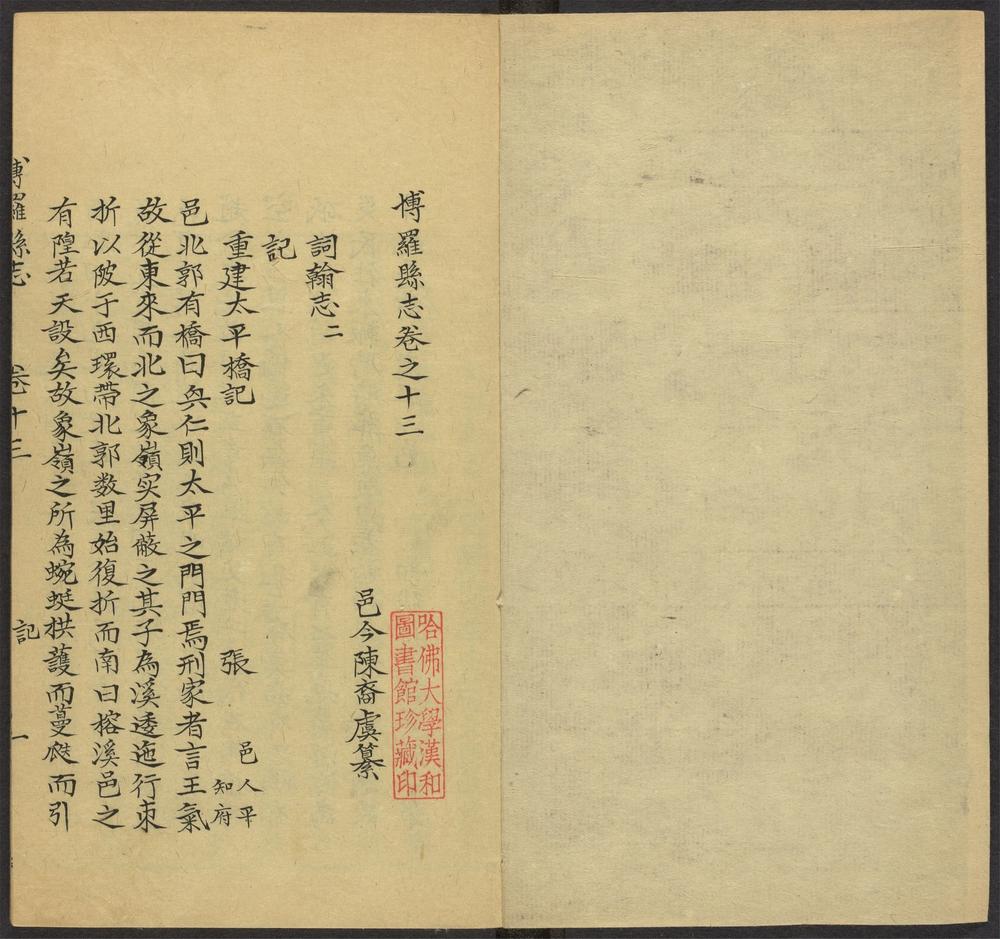 博羅縣志卷之十三
邑令陳裔虞纂
哈佛大學漢和
圖書館珍藏印
詞翰志二
記
重建太平橋記 張 邑人平
知府
邑北郭有橋曰與仁則太平之門門焉刑家者言王氣
故從東來而北之象嶺实屏蔽之其子為溪透迤行東
折以陂于西環帶北郭数里始復折而南曰榕溪邑之
有隍若天設矣故象嶺之所為蜿蜓拱護而蔓 而引
博羅縣志 卷十三 記 一